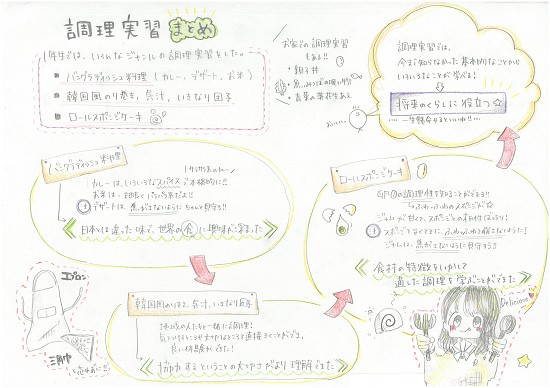 調理実習まとめ
1年生では、いろんなジャンルの調理実習をした。
■ バングラディッシュ料理(カレー、デザート、お米)
■ 韓国風のり巻き、呉汁、いきなり団子
■ ロールスポンジケーキ
お家での調理実習
もある!!
・親子丼
調理実習では、
今まで知らなかった基本的なことから
いろいろなことが学べる!
将来のくらしに役立つ☆
バングラディッシュ料理
カレーは、いろいろなスパイスで本格的に!!
デザートは、焦がさないようにちゃんと見守る!!
日本とは違った味で、世界の食に興味が深まった
エプロン
三角巾
韓国風のりまき、呉汁、いきなり団子
地域の人たちと一緒に調理!
良い体験ができた!
協力するということの大切さがより理解できた
ロールスポンジケーキ
卵の調理性を知ることができる!!
ふわふわのスポンジが☆
ジャムが甘く、スポンジとの相性ばっちり!
ジャムは、焦がさないように見守ろう!
食材の特徴をいかして
適した調理を学ぶことができた
Delicious